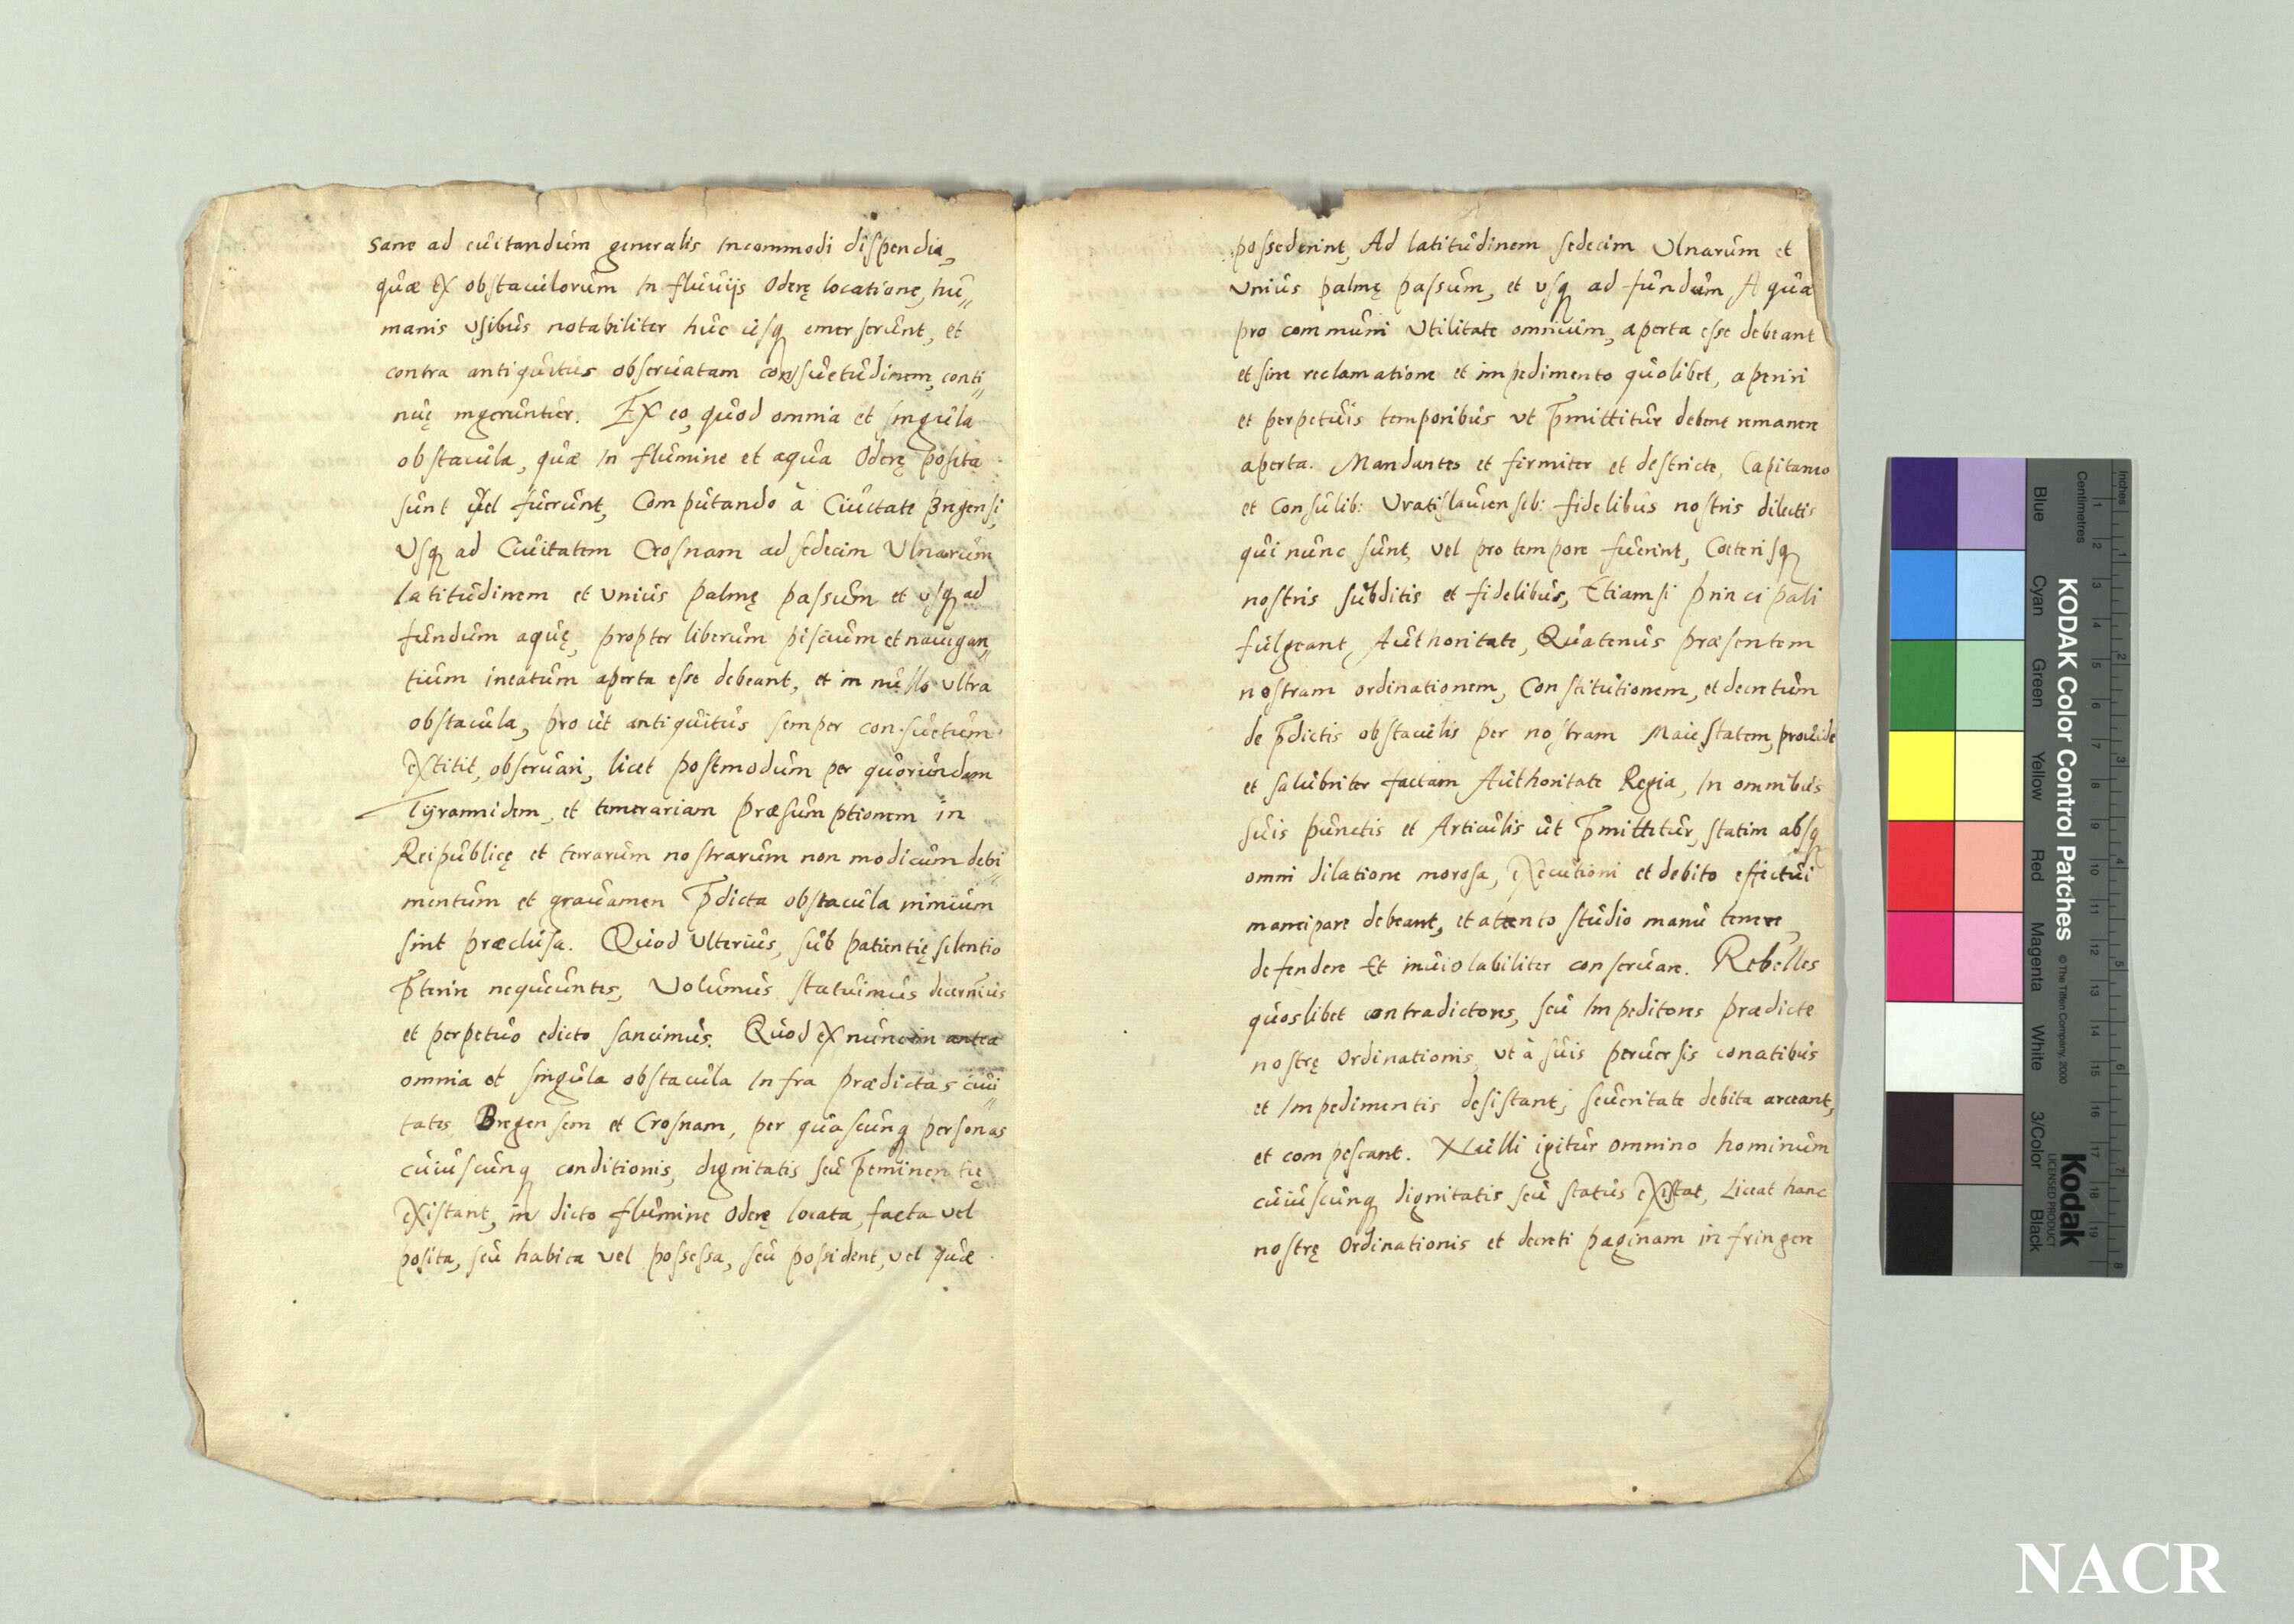 Sane ad euitandum generalis Incommodi dispendia,
quæ ex obstaculorum In fluuijs Oderę locatione, hu„
manis vsibus notabiliter huc usq emerserunt, et
contra antiquitus obseruatam consuetudinem, conti„
nuę ingeruntur. Ex eo, quod omnia et singula
obstacula, quæ In flumine et aqua Oderę posita
sunt vel fuerunt, Computando à Ciuitate Bregensi,
Vsq ad Ciuitatem Crosnam ad sedecim Vlnarum
latitudinem et vnius palmę passum et vsq ad
fundum aquę, propter liberum pisciũm et nauigan„
tium meatum aperta esse debeant, et in nullo vltra
obstacula, pro ut antiquitus semper consuetum
extitit, obseruari, licet postmodum per quorundam
Tÿrannidem, et temerariam præsumptionem in
Reipublicę et terrarum nostrarum non modicum detri„
mentum et grauamen p̄dicta obstacula nimium
sint præclusa. Quod vlterius, sub patientię silentio
p̄terire nequeuntes, Volumus statuimus decernim̄us
et perpetuo edicto sancimus. Quod ex nunc in antea
omnia et singula obstacula Infra prædictas ciui„
tates Bregensem et Crosnam, per quascunq personas
cuiuscunq conditionis, dignitatis seu p̄eminentię
existant, in dicto flumine Oderę locata, facta vel
posita, seu habita vel possessa, seu possident, vel quæ
possederint, Ad latitudinem sedecim Vlnarum et
vnius palmę passum, et vsq ad fundum Aqua
pro communi Vtilitate omnium, aperta esse debeant
et sine reclamatione et impedimento quolibet, aperiri
et perpetuis temporibus vt p̄mittitur debent remanere
aperta. Mandantes et firmiter et destricte, Capitaneo
et Consulib: Vratislauiensib: fidelibus nostris dilectis
qui nunc sunt, vel pro tempore fuerint, Cæterisq
nostris subditis et fidelibus, Etiamsi principali
fulgeant, Authoritate, Quatenus præsentem
nostram ordinationem, Constitutionem, et decretum
de p̄dictis obstaculis per nostram Maiestatem, prouide
et salubriter factam Authoritate Regia, In omnibus
suis punctis et Articulis ut p̄mittitur, statim absq
omni dilatione morosa, executioni et debito effectui
mancipare debeant, et attento studio manu tenere,
defendere Et inuiolabiliter conseruare. Rebelles
quoslibet contradictores, seu Impeditores prædicte
nostrę Ordinationis, vt à suis peruersis conatibus
et Impedimentis desistant, seueritate debita arceant,
et compescant. Nulli igitur omnino hominum
cuiuscunq dignitatis seu status existat, Liceat hanc
nostrę Ordinationis et decreti paginam infringere
KODAK Color Control Patches
© The Tiffen Company, 2000
Kodak
LICENSED PRODUCT
Inches
Centimetres
Blue
Cyan
Green
Yellow
Red
Magenta
White
3/Color
Black
NACR